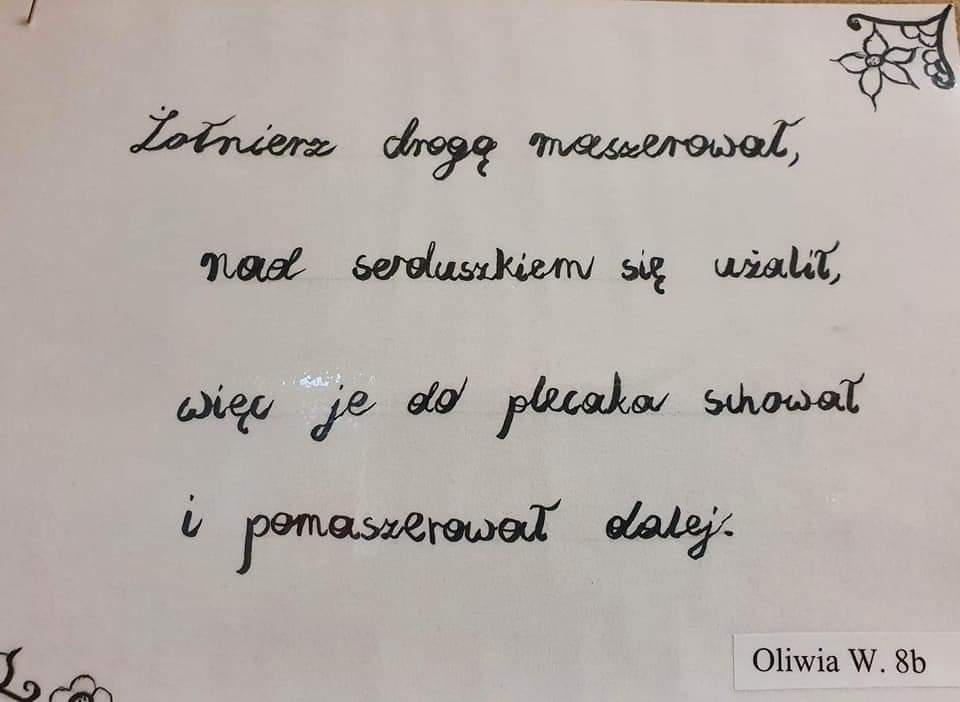 Żołnierz drogą maszerował,
nad serduszkiem się użalił,
więc je do plecaka schował
i pomaszerował dalej.
Oliwia W. 8b